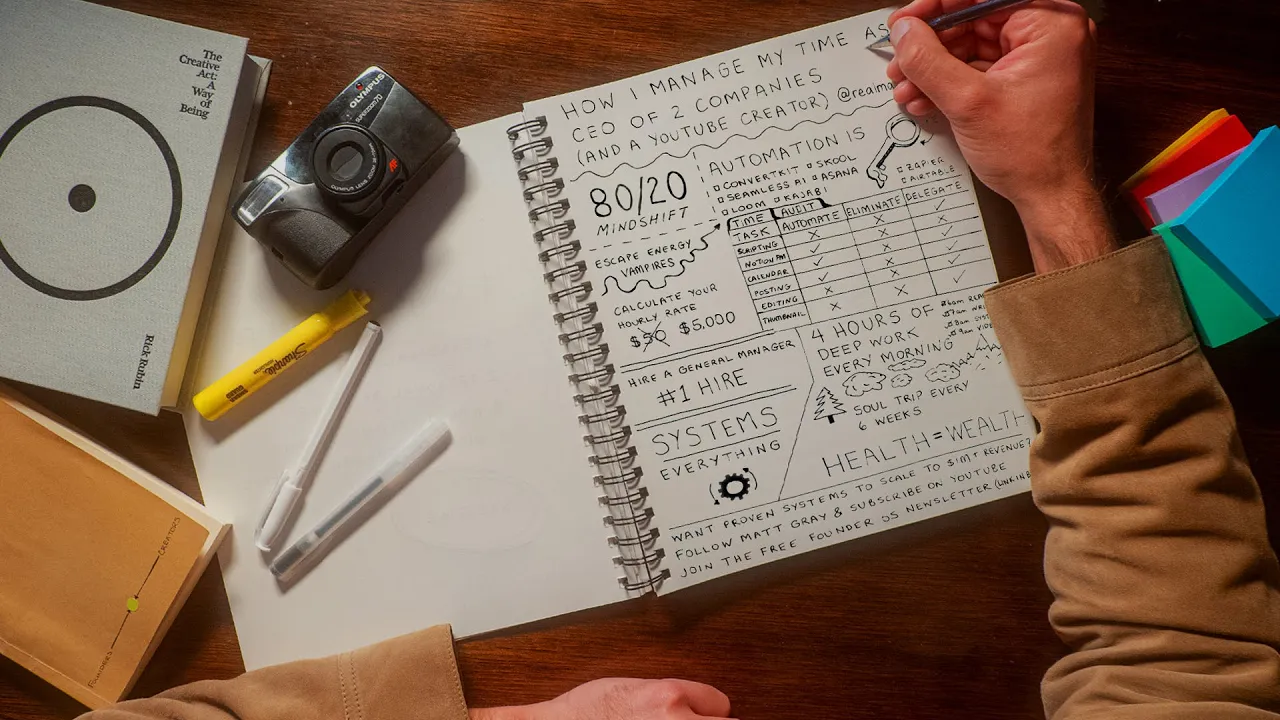 The
Creative
Act:
A
Way
of
Being
Rick Rubin
OLYMPUS
SUPERZOOM
AF
OLYMPUS LENS ZOOM
Sharpie
FOUNDERS
CREATORS
HOW I MANAGE MY TIME AS
CEO OF 2 COMPANIES
(AND A YOUTUBE CREATOR)
80/20
MINDSHIFT
ESCAPE ENERGY
VAMPIRES
CALCULATE YOUR
HOURLY RATE
$50 $5,000
AUTOMATION IS
CONVERTKIT SKOOL
SEAMLESS AI ASANA
LOOM KAJABI
ZAPIER
AIRTABLE
TIME AUDIT
TASK AUTOMATE ELIMINATE DELEGATE
SCRIPTING ✗ ✗ ✓
NOTION PM ✓ ✗ ✓
CALENDAR ✓ ✗ ✓
POSTING ✓ ✗ ✓
EDITING ✗ ✗ ✓
THUMBNAIL
HIRE A GENERAL MANAGER
#1 HIRE
SYSTEMS
EVERYTHING
4 HOURS OF
DEEP WORK
EVERY MORNING
6am
7am
8am
9am
SOUL TRIP EVERY
6 WEEKS
HEALTH=WEALTH
WANT PROVEN SYSTEMS TO SCALE TO $1M+ REVENUE?
FOLLOW MATT GRAY & SUBSCRIBE ON YOUTUBE
JOIN THE FREE FOUNDER OS NEWSLETTER